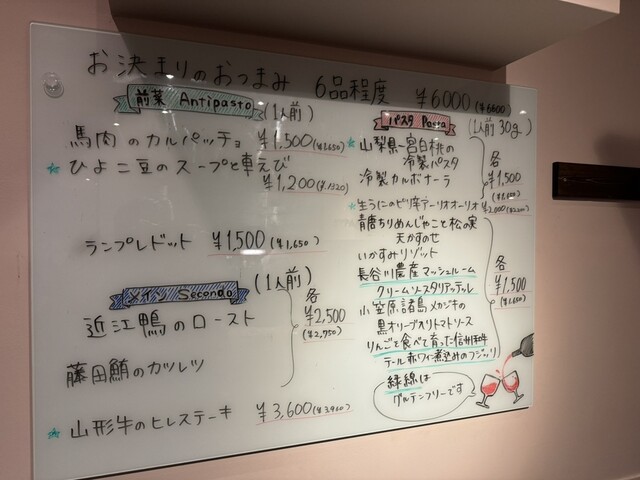 お決まりのおつまみ 6品程度 ¥6000(¥6600)
前菜 Antipasto (1人前)
馬肉のカルパッチョ ¥1,500(¥1,650)
★ひよこ豆のスープと車えび
¥1,200(¥1320)
ランプレドット ¥1,500(¥1,650)
メイン Secondo (1人前)
近江鴨のロースト
各
¥2,500
(¥2,750)
藤田鮪のカツレツ
★山形牛のヒレステーキ ¥3,600
パスタ Pasta (1人前30g)
★山梨県一宮白桃の
冷製パスタ
冷製カルボナーラ
各
¥1,500
(¥1,650)
★生うにのピリ辛アーリオオーリオ ¥2,000(¥2,200)
青唐ちりめんじゃこと松の実
天かすのせ
いかすみリゾット
長谷川農産マッシュルーム
クリームソースタリアッテレ
小笠原諸島メカジキの
黒オリーブ入りトマトソース
りんごを食べて育った信州和牛
テール赤ワイン煮込みのフジッリ
各
¥1,500
(¥1,650)
緑線は
グルテンフリーです